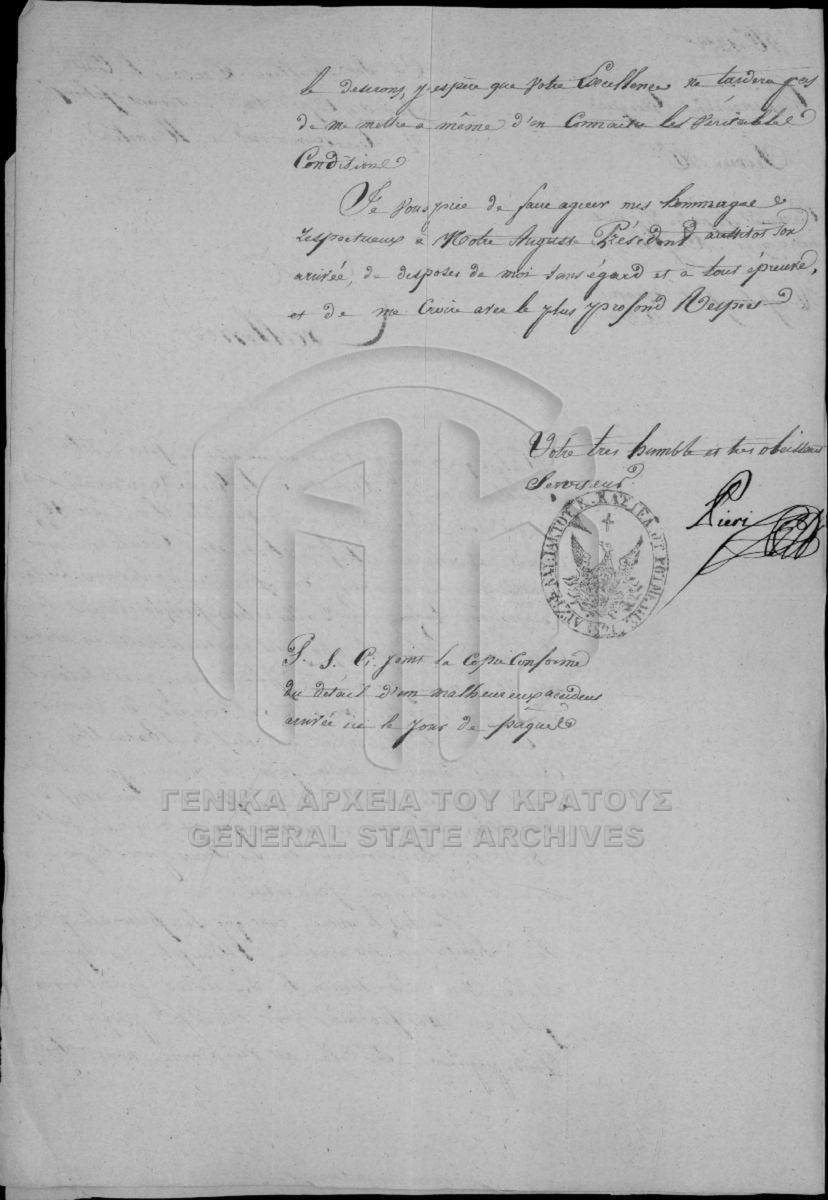 le desirons, j'espère que Votre Excellence ne tardera pas
de me mettre a même d'en Connaître les Veritables
Conditions
Je Vous prie de faire agréer mes hommages
respectueux à Notre Auguste Président aussitot son
arrivée, de disposer de moi sans égard et à tout épreuve,
et de me Croire avec le plus profond Respect
Votre tres humble et tres obeissant
Serviteur
Pieri
P. S. Ci joint la Copie Conforme
du détail d'un malheureux accident
arrivée ici le jour de paques
ΓΕΝΙΚΑ ΑΡΧΕΙΑ ΤΟΥ ΚΡΑΤΟΥΣ
GENERAL STATE ARCHIVES